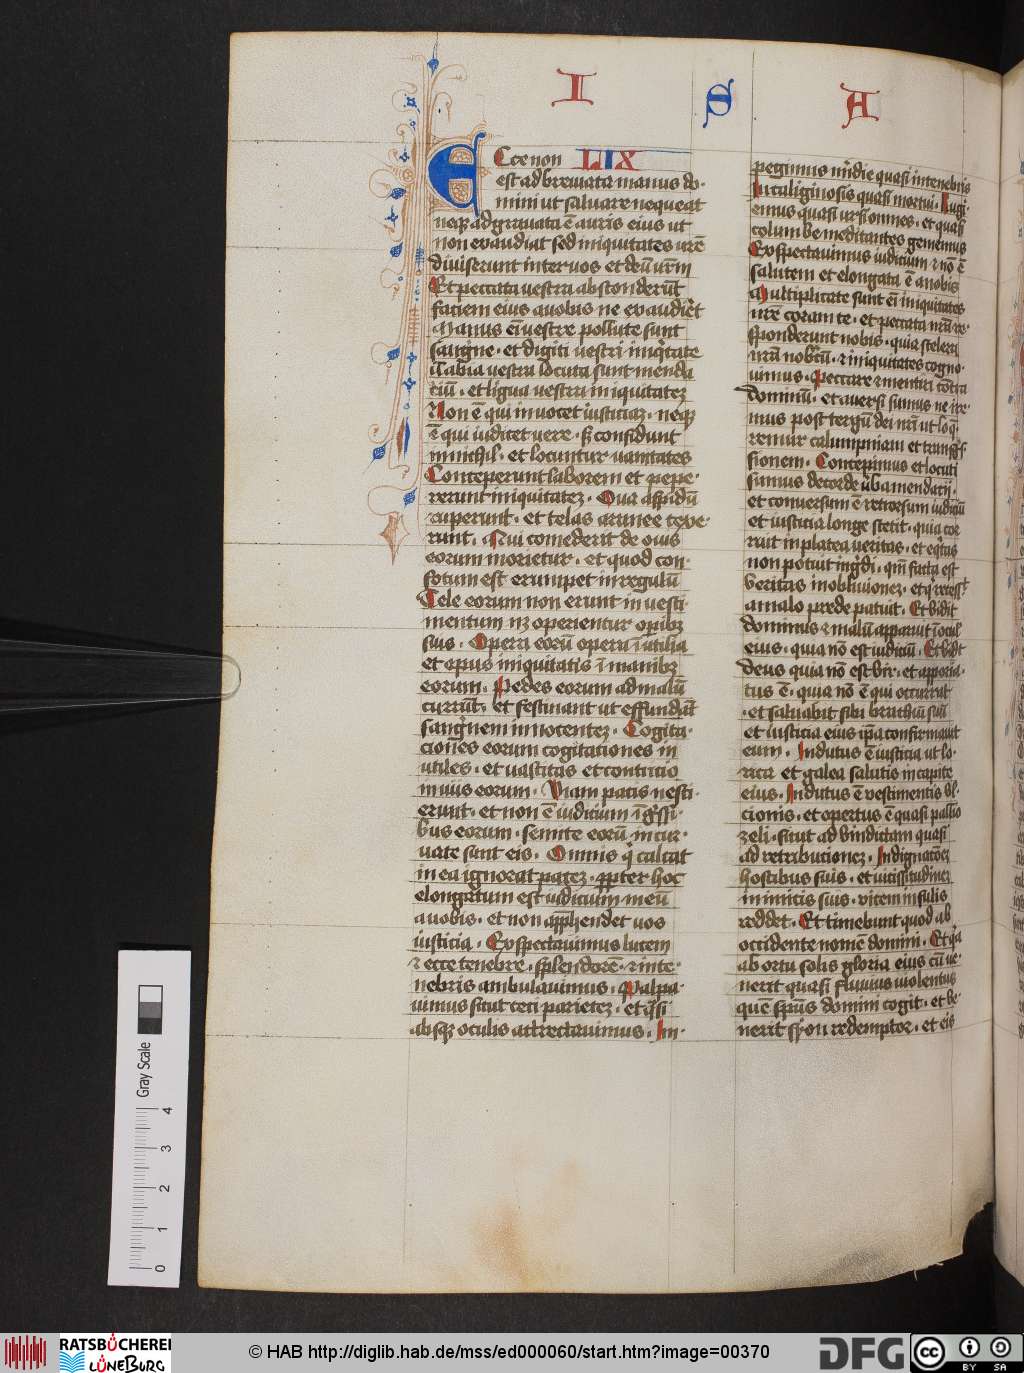 I S A
Ecce non LIX
est adbreviata manus do-
mini ut saluare nequeat
neqz adgravata ē auris eius ut
non exaudiat sed iniquitates vr̄e
diuiserunt inter uos et deū vr̄m
Et peccata uestra absconderūt
faciem eius auobis ne exaudir̄et
Manus ei̅ vestre pollute sunt
sangne · et digiti uestri iniqtate
labia vestra locuta sunt menda
ciū · et ligua vestra iniquitatez
Non ē qui inuocet iusticiaz · neqz
ē qui iudicet uere · sz confidunt
in nichil · et locuntur uanitates
Conceperunt laborem et pepe-
rerunt iniquitatez · Oua aspidū
ruperunt · et telas aranee texe-
runt · Qui comederit de ouis
eorum morietur · et quod con-
fotum est erumpet in regulū
Tele eorum non erunt in uesti
mentum nz operientur opibz
suis · Opera eorū opera īutilia
et opus iniquitatis ī manibz
eorum · Pedes eorum ad malū
currūt · et festinant ut effundāt
sangnem innocentez · Cogita-
ciones eorum cogitationes in
utiles · et uastitas et contricio
in uiis eorum · Viam pacis nesci-
erunt · et non ē iudicium ī gssi-
bus eorum · semite eorū incur-
uate sunt eis · Omnis q calcat
in ea ignorat pacez · ppter hoc
elongatum est iudicium meū
a uobis · et non apphendet uos
iusticia · Exspectauimus lucem
et ecce tenebre · splendorē · et in te-
nebris ambulauimus · Palpa-
uimus sicut ceci parietez · et qsi
absqz oculis attrectauimus · Im-
pegimus mīdie quasi in tenebris
In caliginosis quasi mortui · Rugi-
emus quasi ursi omnes · et quasi
columbe meditantes gememus
Exspectauimus iudicium et nō ē
salutem et elongata ē a nobis
Multiplicate sunt ei̅ iniquitates
nr̄e coram te · et peccata nr̄a re-
sponderunt nobis · quia scelera
nr̄a nobcū · et iniquitates cogno-
uimus · Peccare et mentiri cōtra
dominū · et auersi sumus ne ire-
mus post tergū dei nr̄i ut loq-
remur calumpniam et transgs-
sionem · Concepimus et locuti
sumus de corde uba mendacij ·
et conuersum ē retrorsum iudiciū
et iusticia longe stetit · quia cor-
ruit in platea ueritas · et eqtas
non potuit ingdi · qm̄ facta est
veritas in obliuionez · et q recess
a malo prede patuit · Et vidit
dominus et malū apparuit ī ocul
eius · quia nō est iudiciū · Et vidit
deus quia nō est vir · et aporia-
tus ē · quia nō ē qui occurrat
· et saluabit sibi brachiū suū
et iusticia eius ipa confirmauit
eum · Indutus ē iusticia ut lo-
rica et galea salutis in capite
eius · Indutus ē vestimentis vl-
cionis · et opertus ē quasi pallio
zeli · sicut ad vindictam quasi
ad retribucionez · Indignacōez
hostibus suis · et uicissitudinez
inimicis suis · vicem insulis
reddet · Et timebunt quod ab
occidente nomē domini · Et qa
ab ortu solis gloria eius cū ve-
nerit quasi fluuius uiolentus
quē spūs domini cogit · et ve-
nerit syon redemptor · et eis
Gray Scale
0 1 2 3 4
RATSBÜCHEREI LÜNEBURG
© HAB http://diglib.hab.de/mss/ed000060/start.htm?image=00370
DFG
cc BY SA